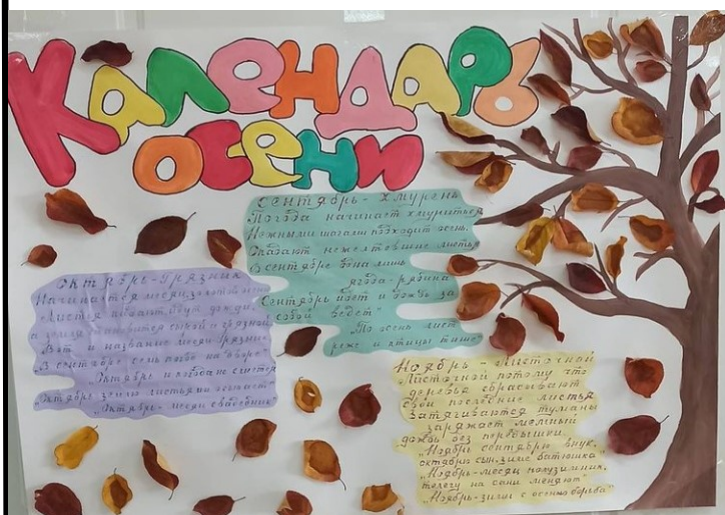 Календарь
осени
Сентябрь - Хмурень
Погода начинает хмуриться
Нежными шагами подходит осень.
Опадают пожелтевшие листья
В сентябре одна лишь
ягода - рябина
Сентябрь идет и дождь за
собой ведёт"
"По осень лист
реже и птицы тише
Октябрь - Грязник
Начинается месяц
Листья падают, идут дожди,
и земля становится сырой и грязной
Вот и название месяца грязник
В сентябре семь погод на дворе"
"Октябрь
Октябрь землю листьями
"Октябрь - месяц свадебник"
Ноябрь - Листочной
"Листочной потому что
деревья сбрасывают
свои последние листья
Затягиваются туманы
заряжает мелкий
дождь без передышки.
"Ноябрь сентябрю внук,
октябрю сын, зиме батюшка"
"Ноябрь - месяц полузимник.
телегу на сани меняют"
"Ноябрь - зимы с осенью борьба"